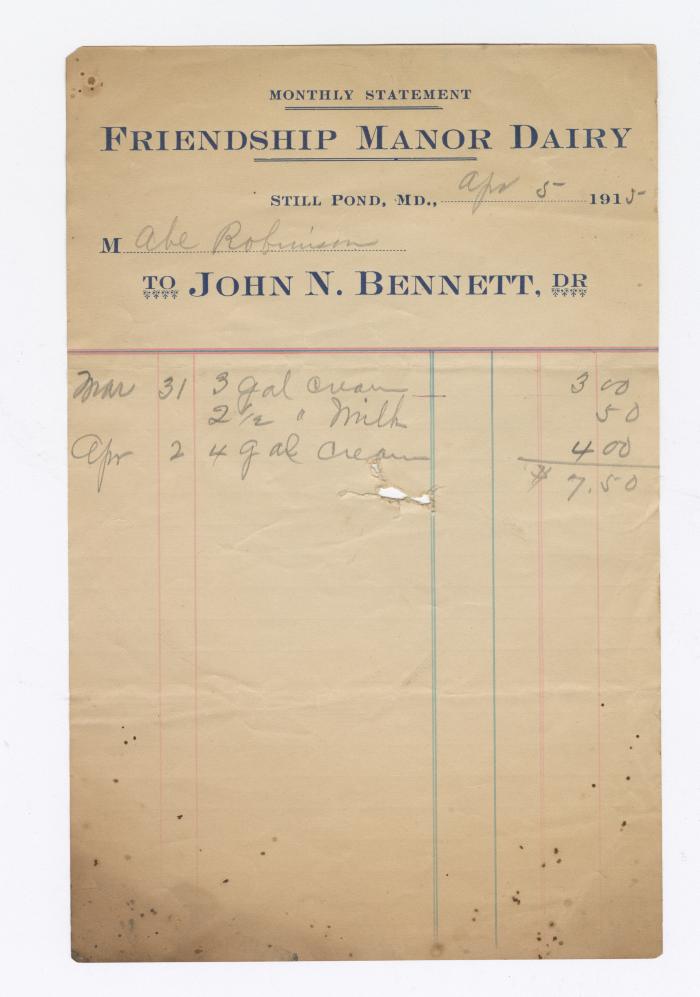 MONTHLY STATEMENT
FRIENDSHIP MANOR DAIRY
STILL POND, MD., Apr 5 1915
M Abe Robinson
TO JOHN N. BENNETT, DR
Mar 31 3 gal cream 3 00
2 1/2 " Milk 50
Apr 2 4 gal cream 4 00
$ 7.50